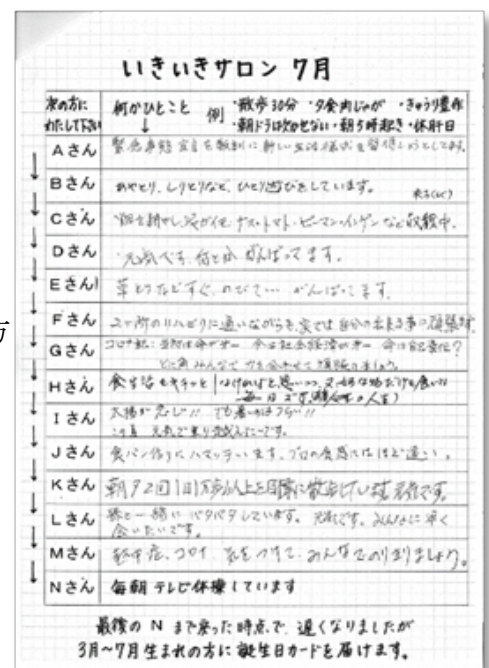 いきいきサロン 7月
次の方に
わたして下さい
何かひとこと
↓
例 ・散歩30分 ・夕食肉じゃが ・きゅうり豊作
・朝ドラは欠かせない・朝5時起き・休肝日
Aさん 緊急事態宣言を教訓に新しい生活様式を習得しようとしてます。
Bさん あやとり、しりとりなど、ひとり遊びをしています。
Cさん 畑を耕やし、ジャガイモ、ナス、トマト・ピーマン・インゲンなど収穫中。
Dさん 元気です、何とか がんばってます。
Eさん 草とりなどすぐ、のびて… がんばってます。
Fさん 2ヶ所のリハビリに通いながらも、家では自分の出来る事に頑張ってます
Gさん コロナ
みんなで 力を合わせて 頑張りましょう
Hさん 食生活もキチッと
Iさん 太陽が恋しい!! でも暑いのはつらい!!
元気で乗り越えたいです。
Jさん 食パン作りにハマッています。プロの食感にはほど遠い。
Kさん 朝夕2回1日1万歩以上を目標に散歩しています。元気です。
Lさん 孫と一緒にバタバタしています。元気です。みんなに早く
会いたいです。
Mさん 熱中症、コロナ、気をつけて、みんなでのりきりましょう。
Nさん 毎朝 テレビ体操しています
最後の N まで戻った時点で、遅くなりましたが
3月〜7月生まれの方に誕生日カードを届けます。
方